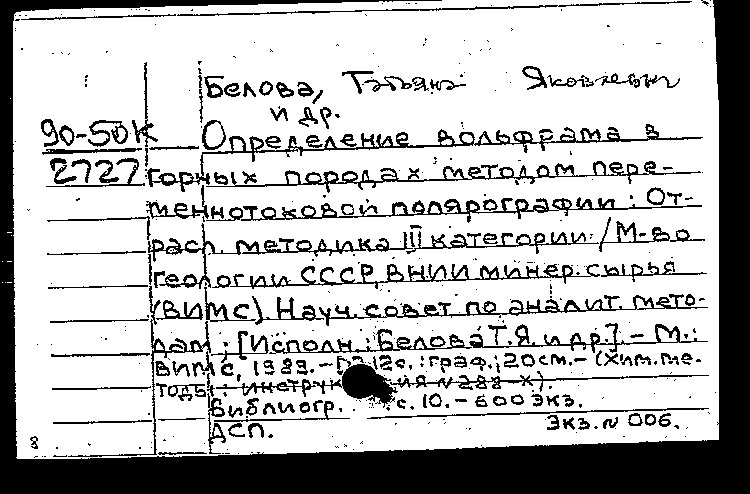 Белова, Татьяна Яковлевна
и др.
90-50К
2727
Определение вольфрама в
горных породах методом пере-
меннотоковой полярографии: От-
расл. методика III категории. / М-во
геологии СССР, ВНИИ минер. сырья
(ВИМС). Науч. совет по аналит. мето-
дам; [Исполн.: Белова Т.Я. и др.]. - М.:
ВИМС, 1989. - 12с.: граф.; 20см. - (Хим. ме-
тоды: N 288-X).
Библиогр. с. 10. - 600 экз.
ДСП.
Экз. N 006.
8